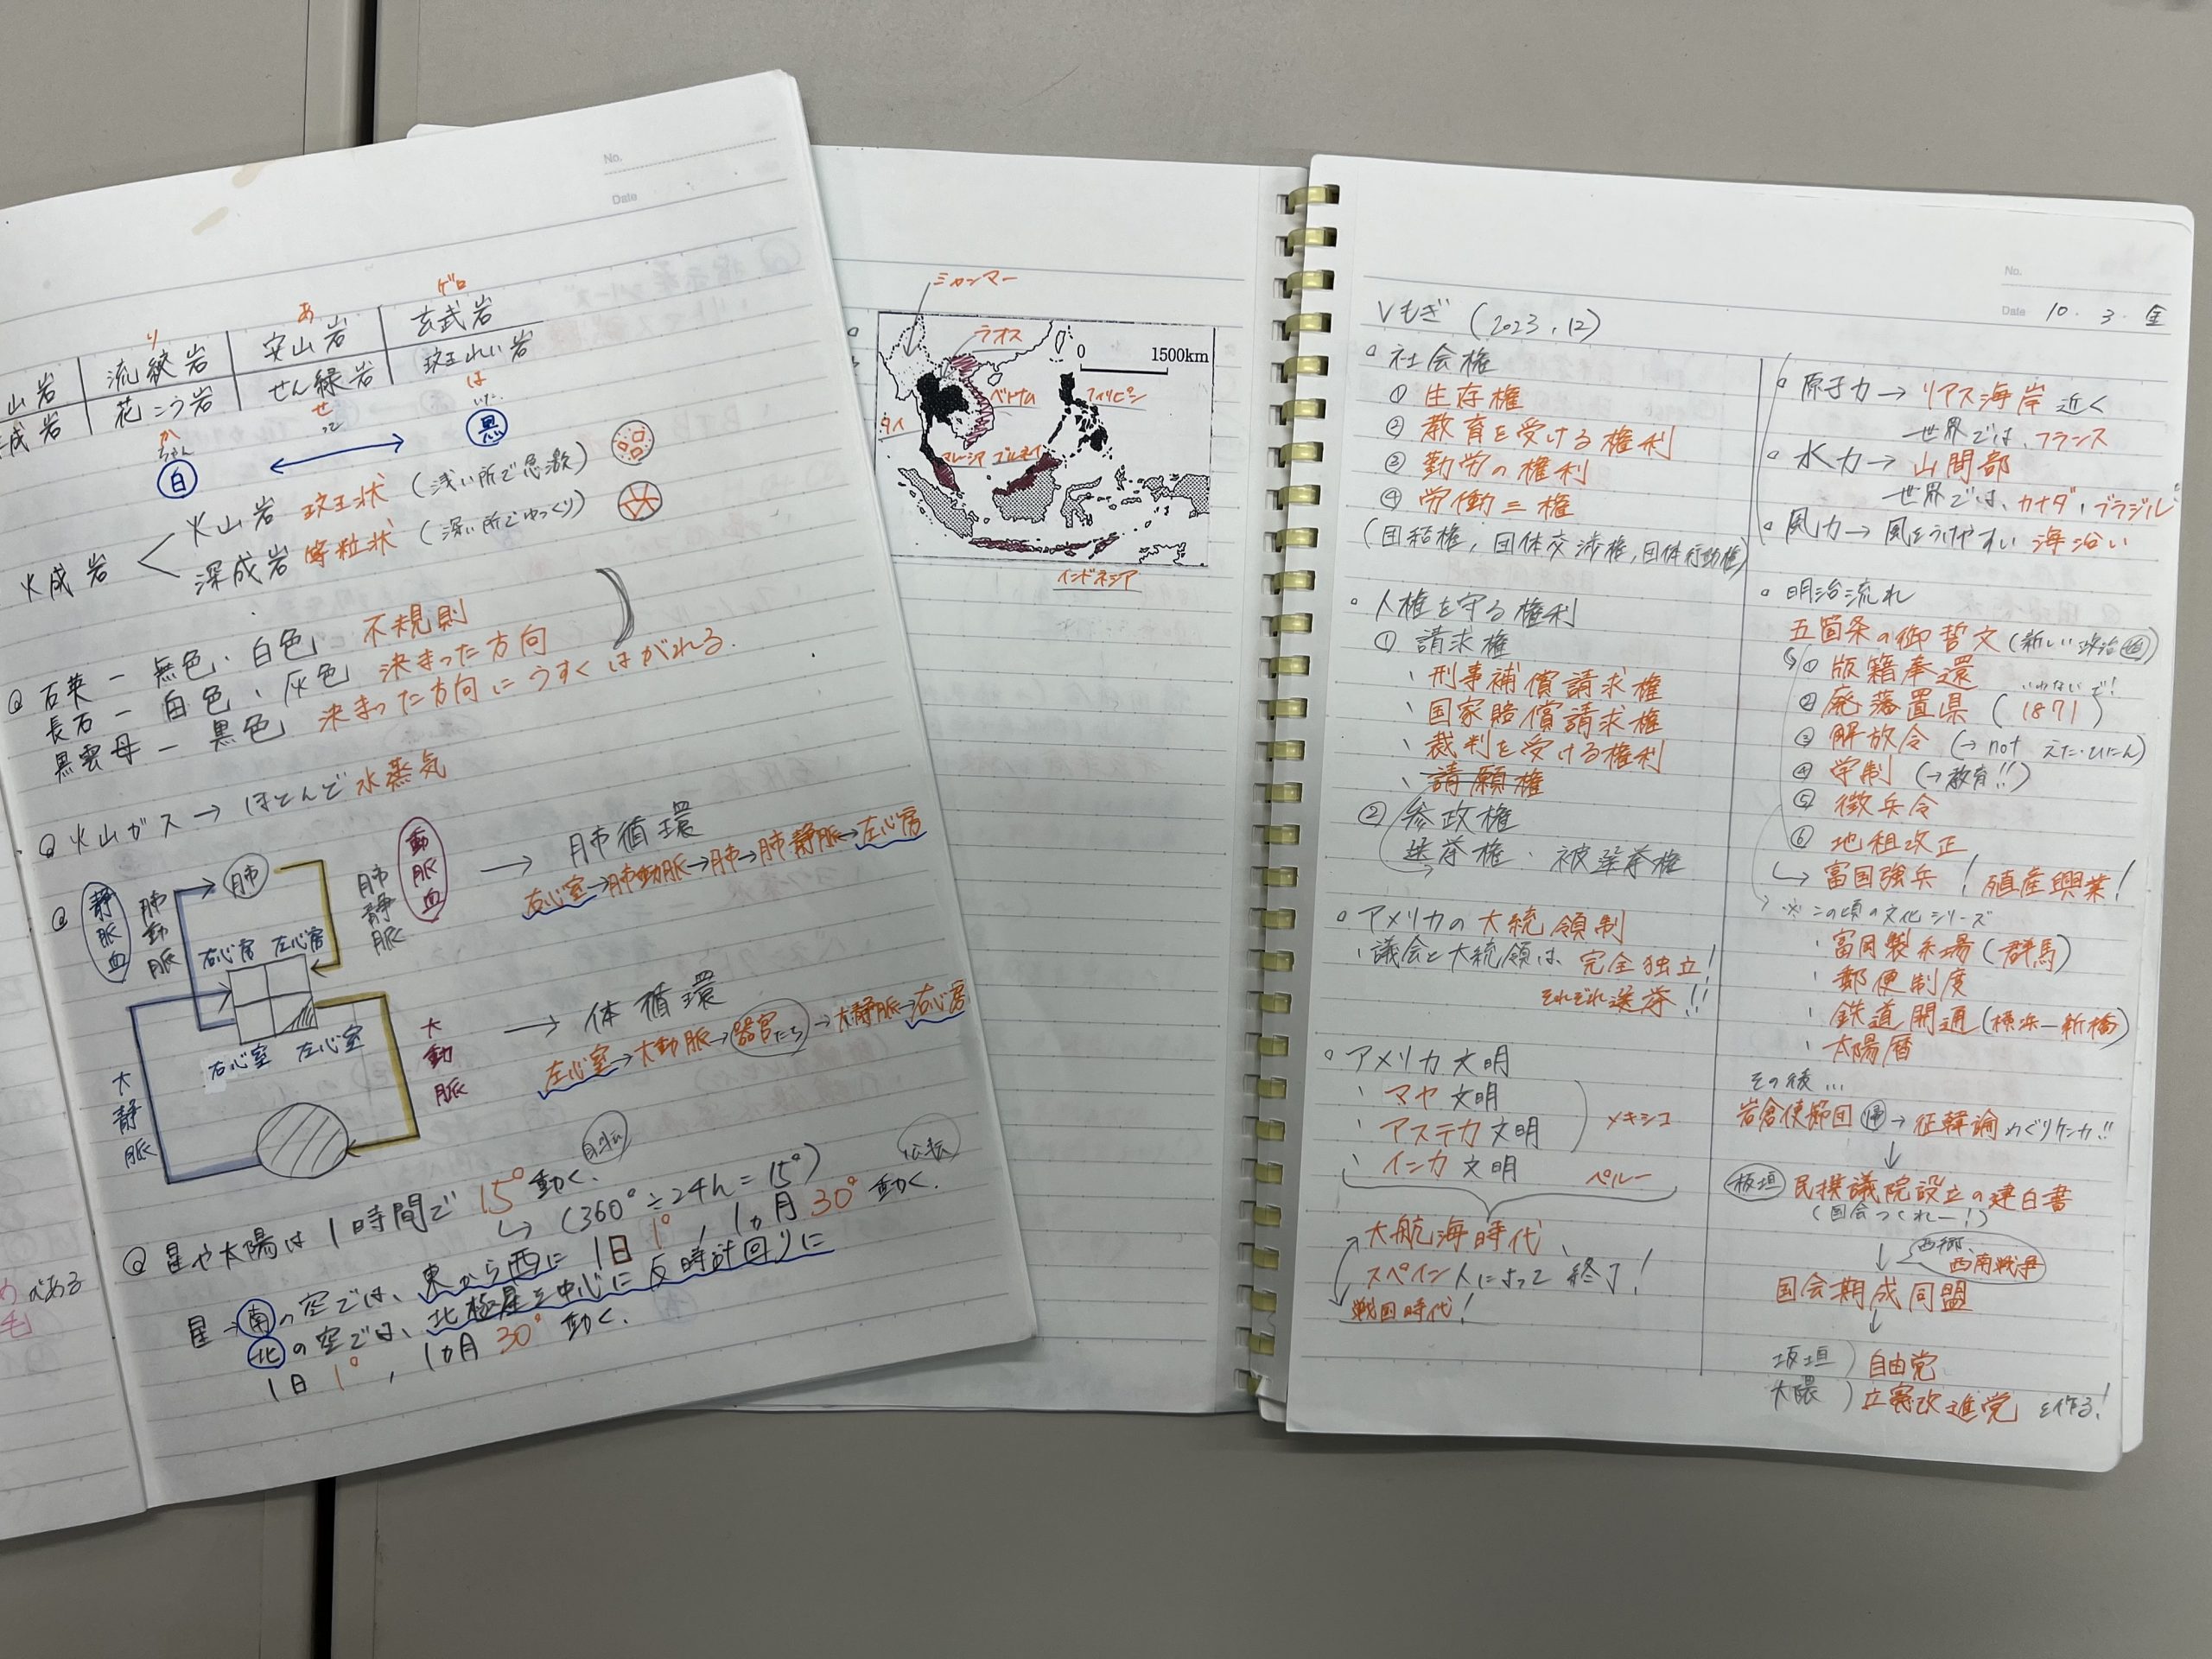 No.
Date
り
あ
ゲロ
山岩 流紋岩 安山岩 玄武岩
成岩 花こう岩 せん緑岩 斑れい岩
か
ちゃん
せ
って
は
いた
白
黒
火成岩
火山岩 斑状 (浅い所で急激)
深成岩 等粒状 (深い所でゆっくり)
石英 - 無色・白色 不規則
長石 - 白色・灰色 決まった方向
黒雲母 - 黒色 決まった方向にうすくはがれる.
火山ガス → ほとんど水蒸気
静脈血
肺動脈
肺
肺静脈
動脈血
→ 肺循環
右心室→肺動脈→肺→肺静脈→左心房
右心房 左心房
右心室 左心室
大静脈
大動脈
→ 体循環
左心室→大動脈→器官たち→大静脈→右心房
自転
公転
星や太陽は1時間で 15°動く.
(360°÷24h=15°)
星→南の空では、東から西に 1日1°, 1ヵ月30°動く.
北の空では、北極星を中心に反時計回りに
1日1°, 1ヵ月30°動く.
がある
毛
ミャンマー
ラオス
0 1500km
ベトナム
フィリピン
タイ
マレーシア ブルネイ
インドネシア
No.
Date 10・3・金
Vもぎ (2023.12)
社会権
① 生存権
② 教育を受ける権利
③ 勤労の権利
④ 労働三権
(団結権, 団体交渉権, 団体行動権)
人権を守る権利
① 請求権
、刑事補償請求権
、国家賠償請求権
、裁判を受ける権利
、請願権
② 参政権
選挙権・被選挙権
アメリカの大統領制
・議会と大統領は、完全独立!
それぞれ選挙!!
アメリカ文明
、マヤ文明
、アステカ文明
、インカ文明
メキシコ
ペルー
大航海時代、
スペイン人によって終了!
戦国時代!
原子力→リアス海岸近く
世界では、フランス
水力→山間部
世界では、カナダ・ブラジル
風力→風をうけやすい海沿い
明治流れ
五箇条の御誓文(新しい政治)
① 版籍奉還
② 廃藩置県 (1871)
③ 解放令 (→not えた・ひにん)
④ 学制 (→教育!!)
⑤ 徴兵令
⑥ 地租改正
→富国強兵! 殖産興業!
※この頃の文化シリーズ
、富岡製糸場(群馬)
、郵便制度
、鉄道開通(横浜ー新橋)
、太陽暦
その後...
岩倉使節団 帰→征韓論めぐりケンカ!!
↓
板垣 民撰議院設立の建白書
(国会つくれー!)
↓
西郷、
西南戦争
国会期成同盟
↓
板垣)自由党
大隈)立憲改進党 を作る!